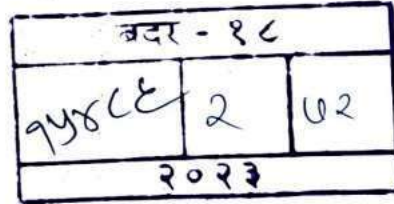 बदर - १८
१५४८६ २ ७२
२०२३